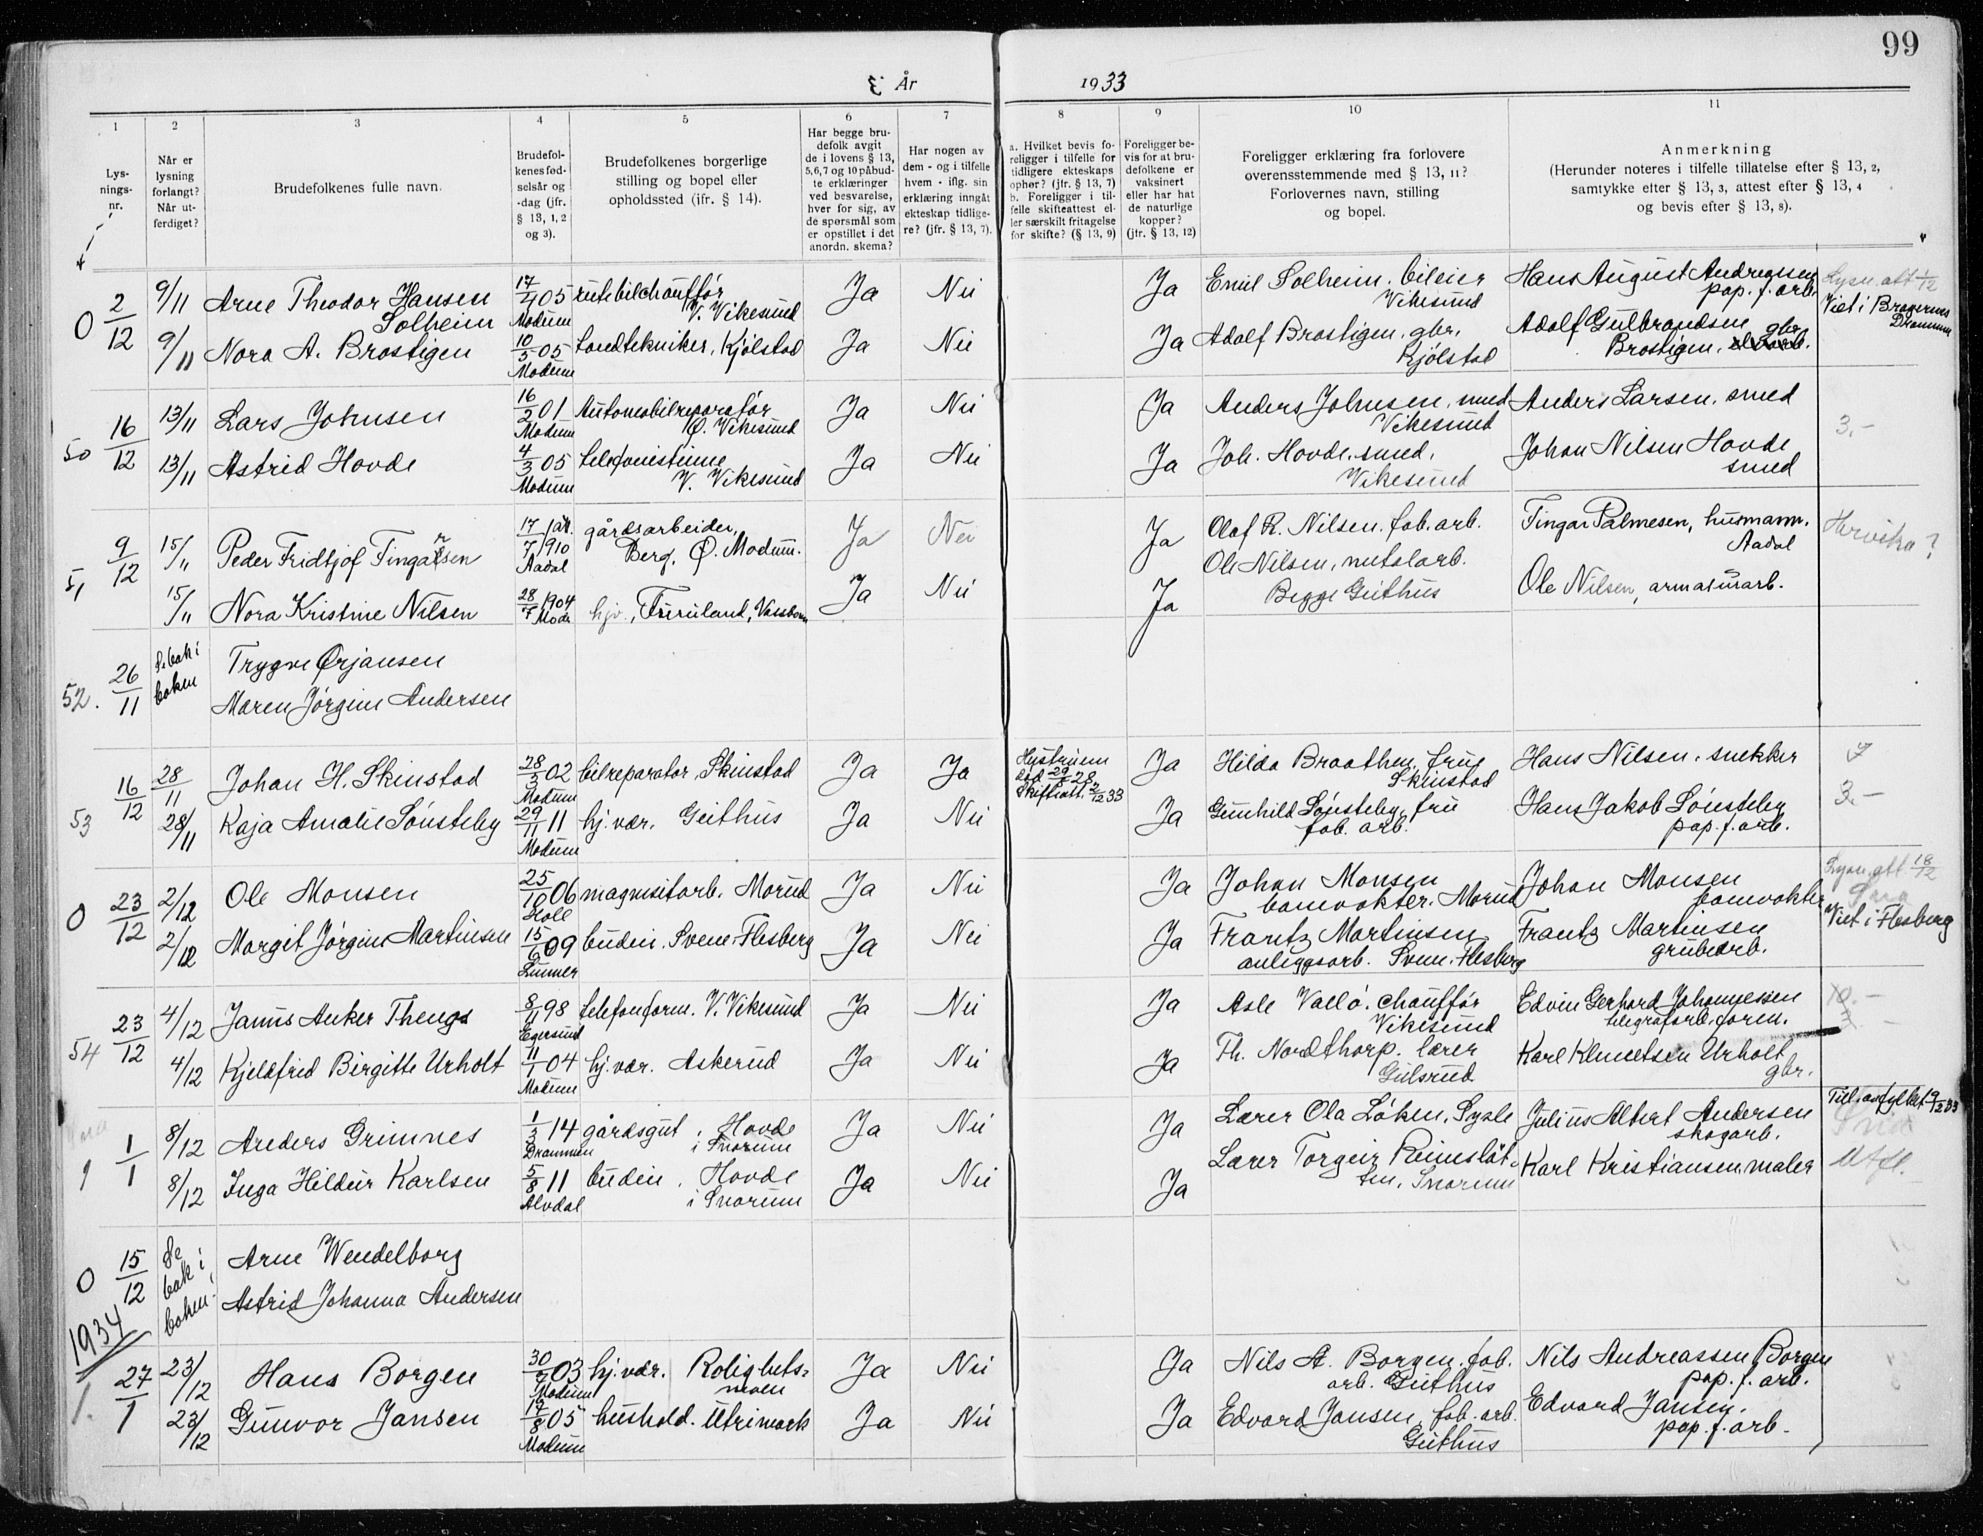 99
År 1933
1 2 3 4 5 6 7 8 9 10 11
Lysningsnr.
Når er lysning forlangt? Når utferdiget?
Brudefolkenes fulle navn.
Brudefolkenes fødselsår og -dag (jfr. § 13, 1, 2 og 3).
Brudefolkenes borgerlige stilling og bopel eller opholdssted (jfr. § 14).
Har begge brudefolk avgit de i lovens § 13, 5,6,7 og 10 påbudte erklæringer ved besvarelse, hver for sig, av de spørsmål som er opstillet i det anordn. skema?
Har nogen av dem - og i tilfelle hvem - iflg. sin erklæring inngåt ekteskap tidligere? (jfr. § 13, 7).
a. Hvilket bevis foreligger i tilfelle for tidligere ekteskaps ophør? (jfr. § 13, 7) b. Foreligger i tilfelle skifteattest eller særskilt fritagelse for skifte? (§ 13, 9)
Foreligger bevis for at brudefolkene er vaksinert eller har hat de naturlige kopper? (jfr. § 13, 12)
Foreligger erklæring fra forlovere overensstemmende med § 13, 11? Forlovernes navn, stilling og bopel.
Anmerkning (Herunder noteres i tilfelle tillatelse efter § 13, 2, samtykke efter § 13, 3, attest efter § 13, 4 og bevis efter § 13, 8).
0 2/12 9/11 Arne Theodor Hansen Solheim 17/4 05 Modum rutebilchauffør V. Vikesund Ja Nei Ja Emil Solheim. bileier Vikesund Hans August Andreassen pap. f. arb. Lysn. att 1/12
Viet i Bragernes Drammen
9/11 Nora A. Brostigen 10/5 05 Modum tandtekniker, Kjølstad Ja Nei Ja Adolf Brostigen. gbr. Kjølstad Adolf Gulbrandsen Brostigen. gbr.
50 16/12 13/11 Lars Johnsen 16/2 01 Modum Automobilreparatør Ø. Vikesund Ja Nei Ja Anders Johnsen. smed Vikesund Anders Larsen. smed 3.-
13/11 Astrid Hovde 4/3 05 Modum telefonistinne V. Vikesund Ja Nei Ja Joh. Hovde. smed. Vikesund Johan Nilsen Hovde smed
51 9/12 15/11 Peder Fridtjof Tingarsen 17/7 1910 Aadal gårdsarbeider, Berg, Ø. Modum. Ja Nei Ja Olaf R. Nilsen. fab. arb. Tingar Palmesen, husmann. Aadal
15/11 Nora Kristine Nilsen 1904 Mod. hjv., Furuland, Ja Nei Ja Ole Nilsen, metalarb. Begge Geithus Ole Nilsen, armaturarb.
52. 26/11 Se bak i boken Trygve Ørjansen
Maren Jørgine Andersen
53 16/12 28/11 Johan H. Skinstad 28/3 02 Modum bilreparatør, Skinstad Ja Ja Hustruen død 28 Skifteatt. 2/12 33 Ja Hilda Braathen, frue Skinstad Hans Nilsen. snekker
28/11 Kaja Amalie Sønsteby 29/11 11 Modum hj. vær. Geithus Ja Nei Ja Gunhild Sønsteby, fru fab. arb. Hans Jakob Sønsteby pap. f. arb. 3.-
0 23/12 2/12 Ole Monsen 25/10 06 Holl magnesitarb. Morud Ja Nei Ja Johan Monsen banevokter. Morud Johan Monsen banevokter Lysn. att. 18/12
Viet i Flesberg
2/12 Margit Jørgine Martinsen 15/6 09 Lunner budeie. Svene. Flesberg Ja Nei Ja Frantz Martinsen anleggsarb. Svene. Flesberg Frantz Martinsen grubearb.
54 23/12 4/12 Janus Anker Thengs 8/11 98 Egersund telefonform. V. Vikesund Ja Nei Ja Asle Vallø. chauffør Vikesund Edvin Gerhard Johannessen telegrafarb. form. 10.-
4/12 Kjeldfrid Birgitte Urholt 11/1 04 Modum hj. vær. Askerud Ja Nei Ja Th. Nordthorp. lærer Gulsrud Karl Klemetsen Urholt gbr.
1 1/1 8/12 Anders Grimnes 1/3 14 Drammen gårdsgut, Hovde i Snarum Ja Nei Ja Lærer Ola Løken, Sysle Julius Albert Andersen skogarb.
8/12 Inga Hildur Karlsen 5/8 11 Alvdal budeie. Hovde i Snarum Ja Nei Ja Lærer Torgeir Reinsløtten, Snarum Karl Kristiansen. maler
0 15/12 Se bak i boken! Arne Wendelborg
Astrid Johanna Andersen
1934
1. 27/1 23/12 Hans Borgen 03 Modum hj. vær. Rolighetsmoen Ja Nei Ja Nils A. Borgen. fab. arb. Geithus Nils Andreassen Borgen pap. f. arb.
23/12 Gunvor Jansen 05 Modum hushold. Utrimark Ja Nei Ja Edvard Jansen, fab. arb. Geithus Edvard Jansen. pap. f. arb.